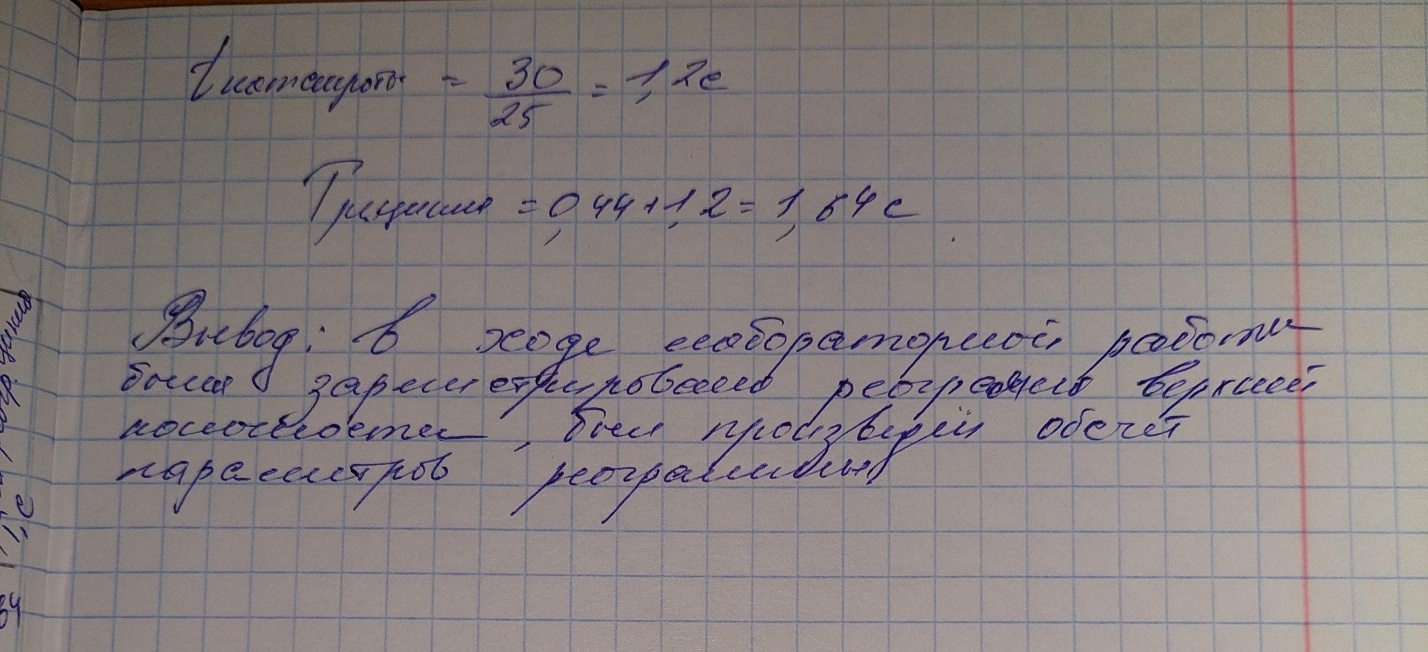 t катакроты = 30/25 = 1,2с
T рец.цикла = 0,44+1,2 = 1,64 с
Вывод: в ходе лабораторной работы
была зарегистрирована реограмма верхней
конечности, был произведён обсчёт
параметров реограммы